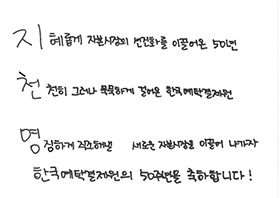 지혜롭게 자본시장의 선진화를 이끌어온 50년
천천히 그러나 묵묵하게 걸어온 한국예탁결제원
명징하게 직조해낼 새로운 자본시장을 이끌어 나가자
한국예탁결제원의 50주년을 축하합니다!